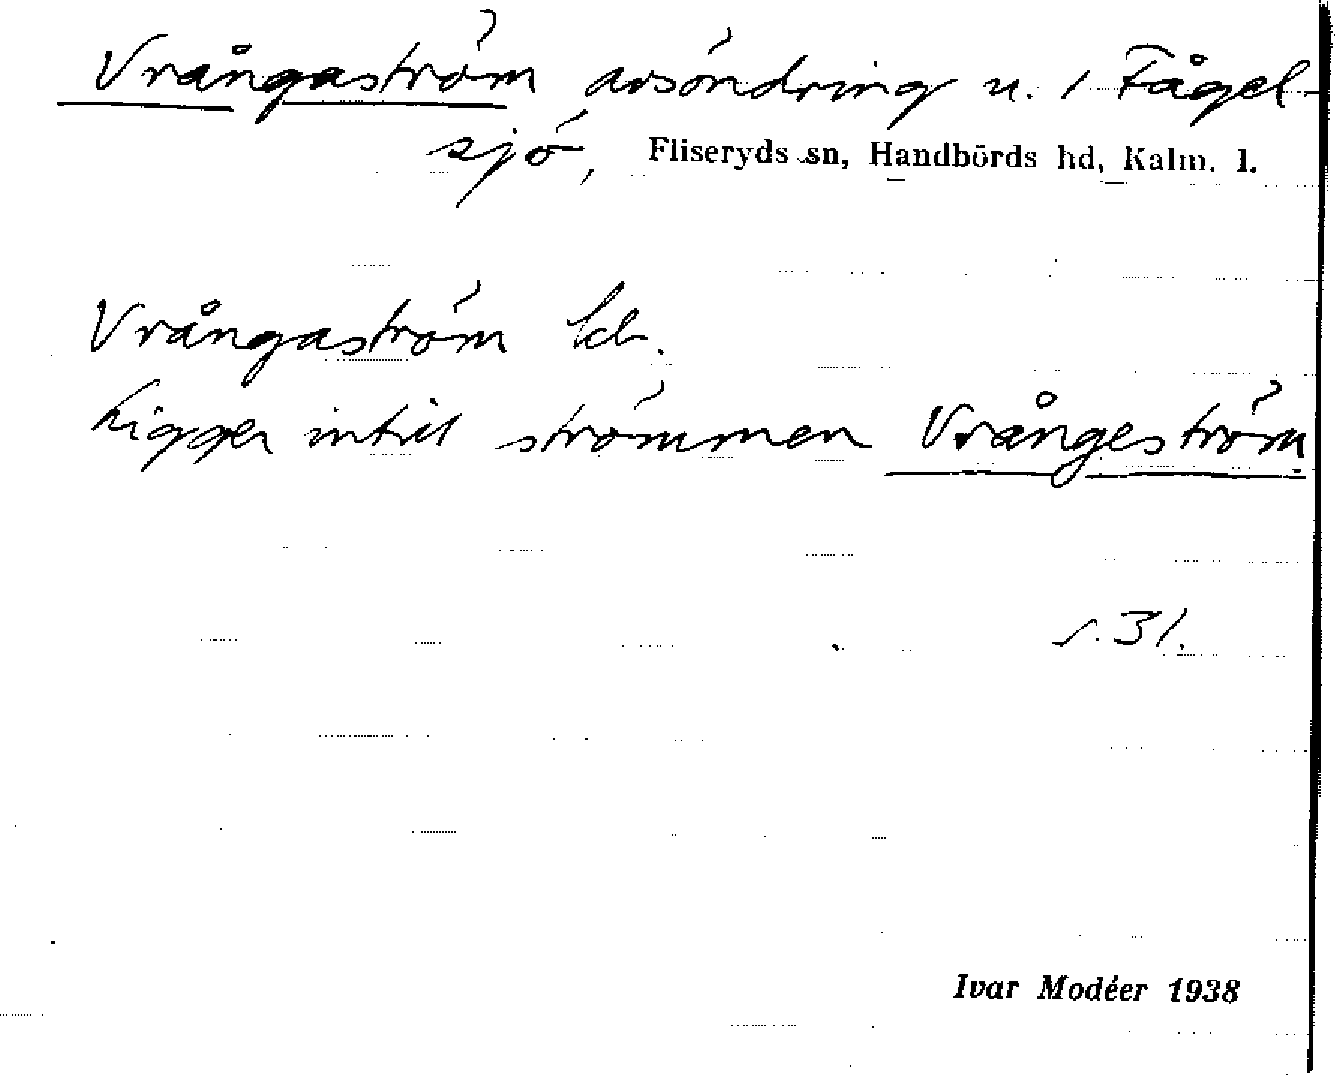 Vrångaström avsöndring u. 1 Fågel-
sjö, Fliseryds sn, Handbörds hd, Kalm. l.
Vrångaström kb.
Ligger intill strömmen Vrångeström
s. 31.
Ivar Modéer 1938